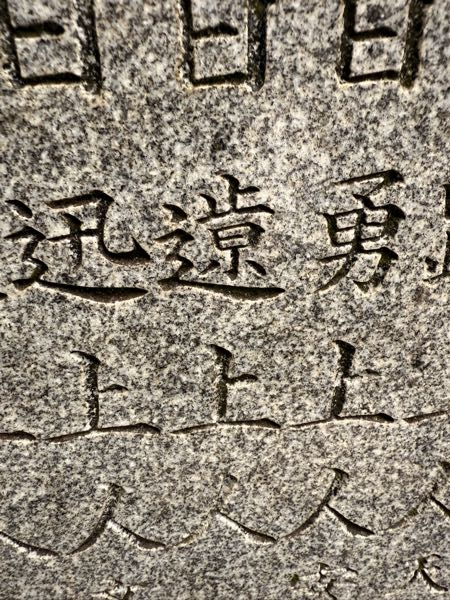 日勇上人
日遠上人
日迅上人